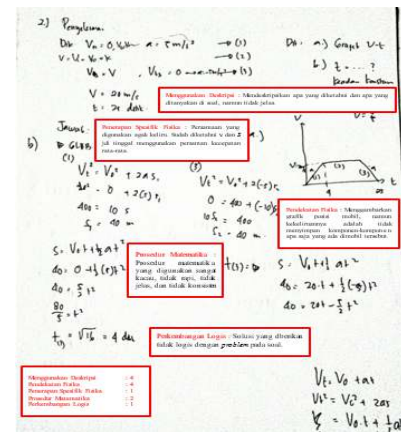 2.) Penyelesaian
Dik: V₀ = 0, a = 5 m/s² → (1)
→ (2)
V = 20 m/s
Dit: a.) Grafik V-t
b.) t = ... ?
Menggunakan Deskripsi : Mendeskripsikan apa yang diketahui dan apa yang ditanyakan di soal, namun tidak jelas
Jawab:
Penerapan Spesifik Fisika : Persamaan yang digunakan agak keliru. Sudah diketahui v dan s jadi tinggal menggunakan persamaan kecepatan rata-rata.
a.)
b) GLBB
(1)
Vt² = V₀² + 2as,
400 = 10 s
S₁ = 40 m
(3)
Vt² = V₀² + 2(-5) s
0 = 400 + (-10)s
10s = 400
S = 40 m
V
t
(1) (2) (3)
Pendekatan Fisika : Menggambarkan grafik posisi mobil, namun kekeliruannya adalah tidak menyimpan komponen-komponen apa saja yang ada dimobil tersebut
S = V₀t + ½ at²
40 = 0 + ½(5)t²
40 = 5/2 t²
80/5 = t²
t₍₁₎ = √16 = 4 det
Prosedur Matematika : Prosedur matematika yang digunakan sangat kacau, tidak rapi, tidak jelas, dan tidak konsisten
t(3) =
S = V₀t + ½ at²
40 = 20t + ½(-5)t²
40 = 20t - 5/2 t²
Perkembangan Logis : Solusi yang diberikan tidak logis dengan problem pada soal.
Menggunakan Deskripsi : 4
Pendekatan Fisika : 4
Penerapan Spesifik Fisika : 1
Prosedur Matematika : 2
Perkembangan Logis : 1
Vt = V₀ + at
Vt² = V₀² + 2as
= V₀.t + ½ a